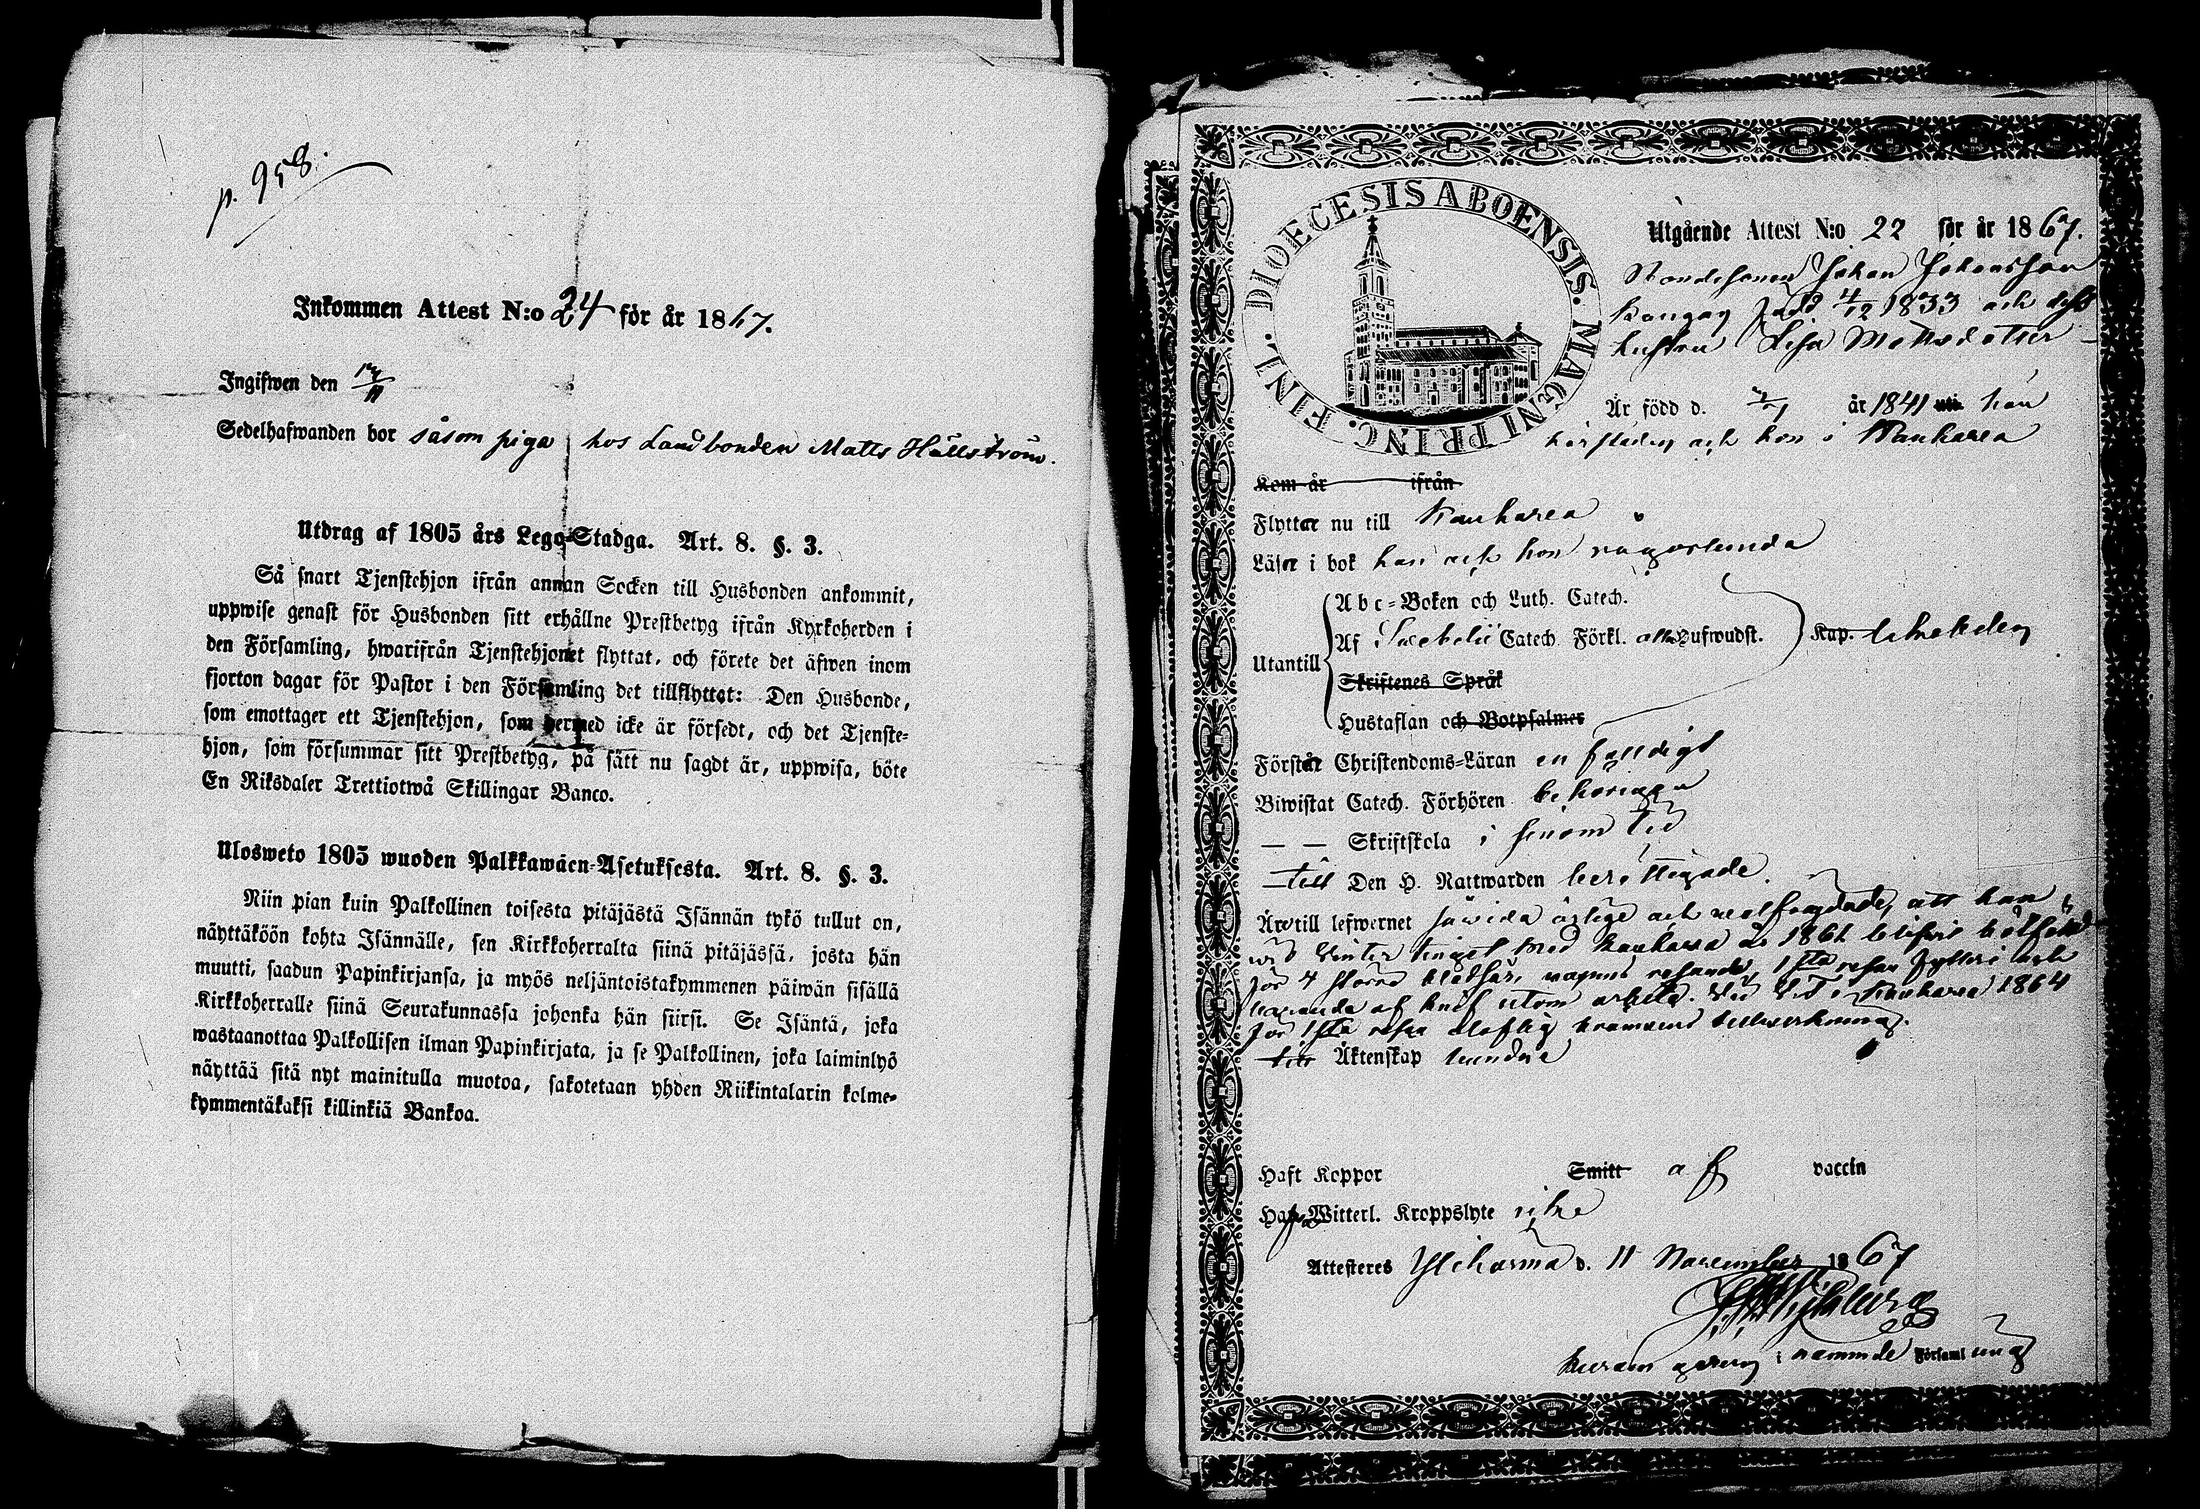 p. 958.
Inkommen Attest N:o 24 för år 1867.
Ingifwen den 17/11
Sedelhafwanden bor såsom piga hos Landbonden Matts Hällström.
Utdrag af 1805 års Lego-Stadga. Art. 8. §. 3.
Så snart Tjenstehjon ifrån annan Socken till Husbonden ankommit,
uppwise genast för Husbonden sitt erhållne Prestbetyg ifrån Kyrkoherden i
den Församling, hwarifrån Tjenstehjonet flyttat, och förete det äfwen inom
fjorton dagar för Pastor i den Församling det tillflyttat: Den Husbonde,
som emottager ett Tjenstehjon, som hermed icke är försedt, och det Tjenste-
hjon, som försummar sitt Prestbetyg, på sätt nu sagdt är, uppwisa, böte
En Riksdaler Trettiotwå Skillingar Banco.
Ulosweto 1805 wuoden Palkkawäen-Asetuksesta. Art. 8. §. 3.
Niin pian kuin Palkollinen toisesta pitäjästä Isännän tykö tullut on,
näyttäköön kohta Isännälle, sen Kirkkoherralta siinä pitäjässä, josta hän
muutti, saadun Papinkirjansa, ja myös neljäntoistakymmenen päiwän sisällä
Kirkkoherralle siinä Seurakunnassa johonka hän siirsi. Se Isäntä, joka
wastaanottaa Palkollisen ilman Papinkirjata, ja se Palkollinen, joka laiminlyö
näyttää sitä nyt mainitulla muotoa, sakotetaan yhden Riikintalarin kolme-
kymmentäkaksi killinkiä Bankoa.
DIOECESIS ABOENSIS. MAGNI PRINC. FINL.
Utgående Attest N:o 22 för år 1867.
Bondesonen Johan Johansson
Kangas född 4/12 1833 och dess
hustru Lisa Mattsdotter
Är född d. år 1841 uti han
härstädes och hon i Kauhava
Kom år ifrån
Flyttar nu till Kauhava
Läser i bok han och hon någorlunda
Abc-Boken och Luth. Catech.
Utantill Af Swebelii Catech. Förkl. Kap.
Skriftenes Språk
Hustaflan och Botpsalmer
Förstår Christendoms-Läran enfalldigt
Biwistat Catech. Förhören behörigen
— — Skriftskola i sinom tid
till Den H. Nattwarden berättigade.
Äro till lefwernet såvida ärlige och välfrejdade, att han
wid Winter tinget med Kauhava år 1861 blifvit bötfäld
för 4 större resande, 1sta resan fylleri och
af knif utom arbete. Wid i Kauhava 1864
för 1sta resa olaflig brännvins tillverkning.
till Äktenskap
Haft Koppor Smitt af vaccin
Haft Witterl. Kroppslyte icke
Attesteres Ylihärmä d. 11 November 1867
i nämnde Församling